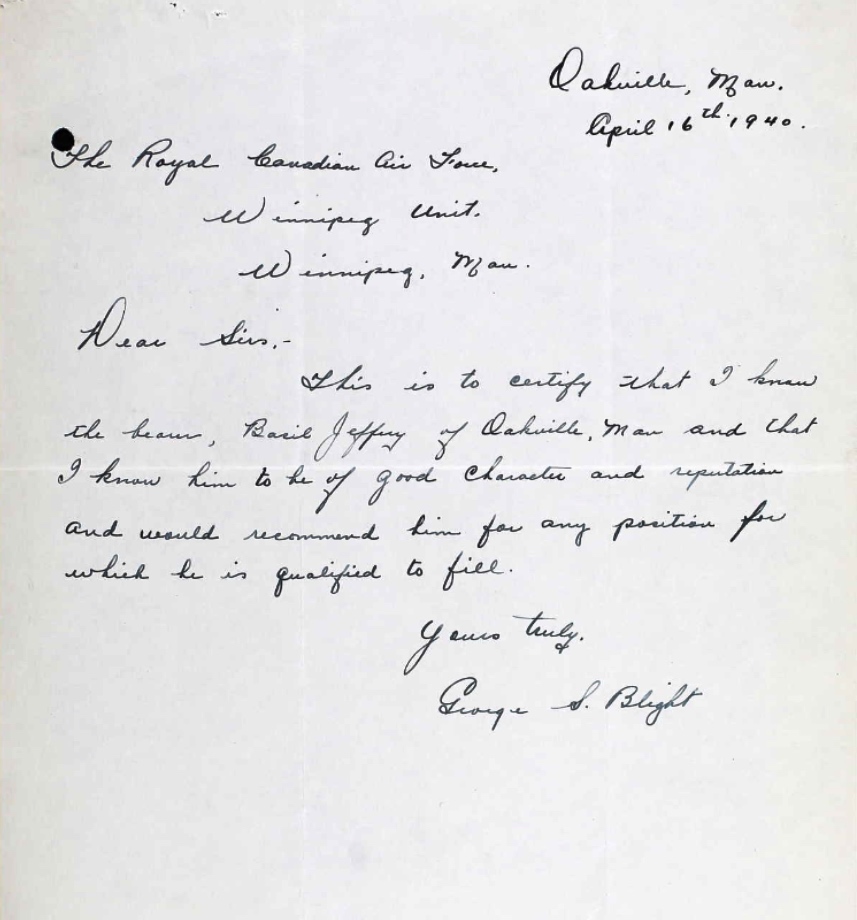 Oakville, Man.
April 16th 1940.
The Royal Canadian Air Force,
Winnipeg Unit.
Winnipeg, Man.
Dear Sirs,-
This is to certify that I know
the bearer, Basil Jeffrey of Oakville, Man and that
I know him to be of good character and reputation
and would recommend him for any position for
which he is qualified to fill.
Yours truly,
George S. Blight